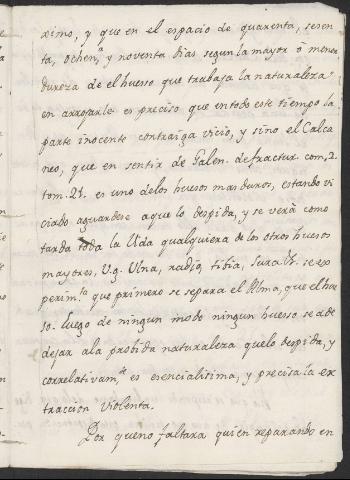 ximo, y que en el espacio de quarenta, sesen
ta, ochen.ª y noventa dias segun la mayor ò menor
dureza de el huesso que trabaja la naturaleza
en arrojarle es preciso que en todo este tiempo la
parte inocente contraiga vicio, y sino el Calca
neo, que en sentir de Galen. de fractur. com. 2.
tom. 21. es uno de los huesos mas duros, estando vi
ciado aguardese a que lo despida, y se verà como
tarda toda la Vida qualquiera de los otros huesos
mayores, V.g. Ulna, radio, tibia, sura &. se ex
perim.ta que primero se separa el Alma, que el hue
so. luego de ningun modo ningun huesso se a de
dejar a la probida naturaleza que lo despida, y
correlativam.te es esencialisima, y precisa la ex
traccion violenta.
Por que no faltara quien reparando en